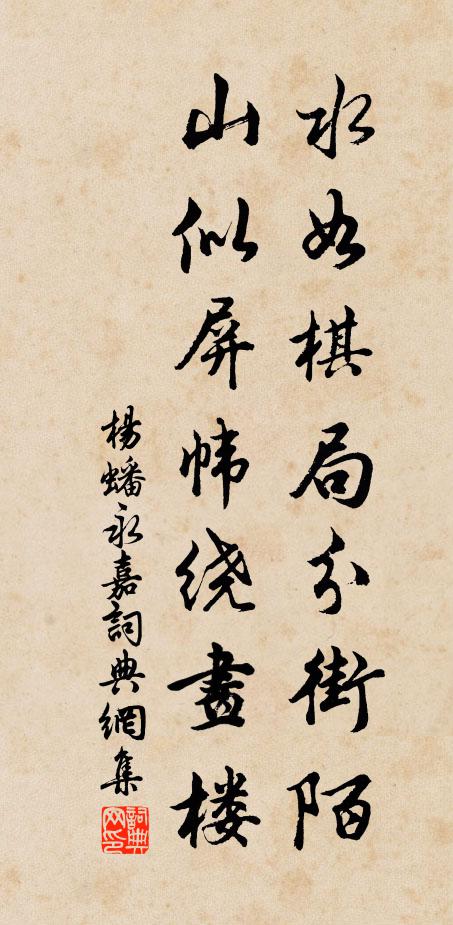 水如棋局分街陌
山似屏帏绕畫楼
杨蟠永嘉詞典網集
詞典网印